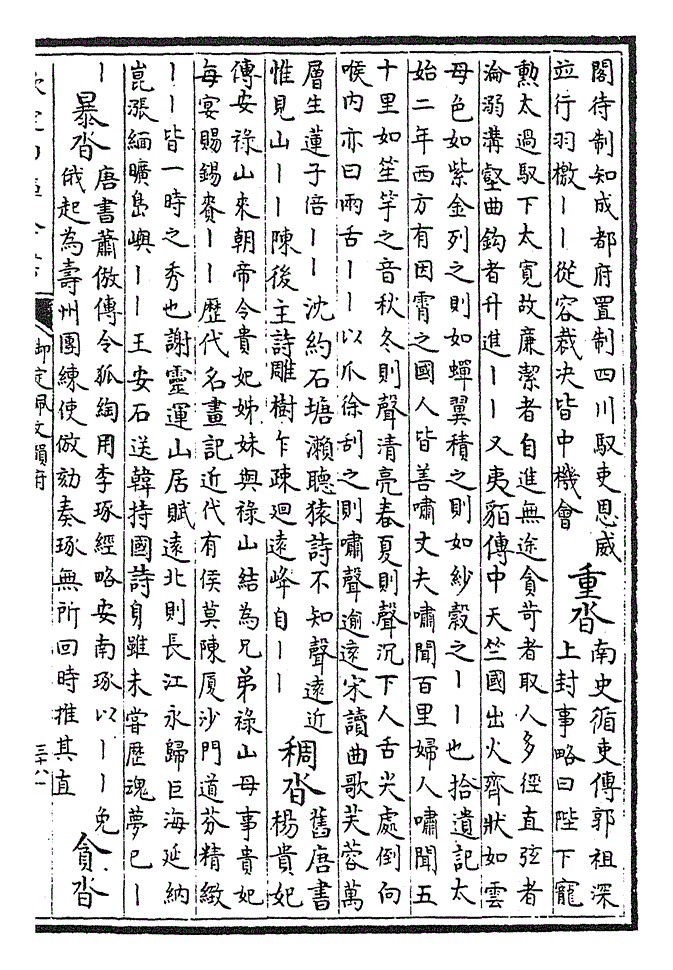 閣待制知成都府置制四川馭吏恩威
竝行羽檄丨丨從容裁决皆中機會
重沓
南史循吏傳郭祖深
上封事略曰陛下寵
勲太過馭下太寛故廉潔者自進無途貪苛者取人多徑直弦者
淪溺溝壑曲鈎者升進丨丨又夷貊傳中天竺國出火齊狀如雲
母色如紫金列之則如蟬翼積之則如紗縠之丨丨也拾遺記太
始二年西方有因霄之國人皆善嘯丈夫嘯聞百里婦人嘯聞五
十里如笙竽之音秋冬則聲清亮春夏則聲沉下人舌尖處倒向
喉内亦曰兩舌丨丨以爪徐刮之則嘯聲逾遠宋讀曲歌芙蓉萬
層生蓮子倍丨丨沈約石塘瀨聽猿詩不知聲遠近
惟見山丨丨陳後主詩雕樹乍疎迴遠峰自丨丨
稠沓
舊唐書
楊貴妃
傳安禄山來朝帝令貴妃姊妹與禄山結為兄弟禄山母事貴妃
每宴賜錫賚丨丨歷代名畫記近代有侯莫陳厦沙門道芬精緻
丨丨皆一時之秀也謝靈運山居賦遠北則長江永歸巨海延納
崑漲緬曠島嶼丨丨王安石送韓持國詩身雖未嘗歷魂夢已丨
丨
暴沓
唐書蕭倣傳令狐綯用李琢經略安南琢以丨丨免
俄起為壽州團練使倣劾奏琢無所回時推其直
貪沓
欽定四庫全書
御定佩文韻府